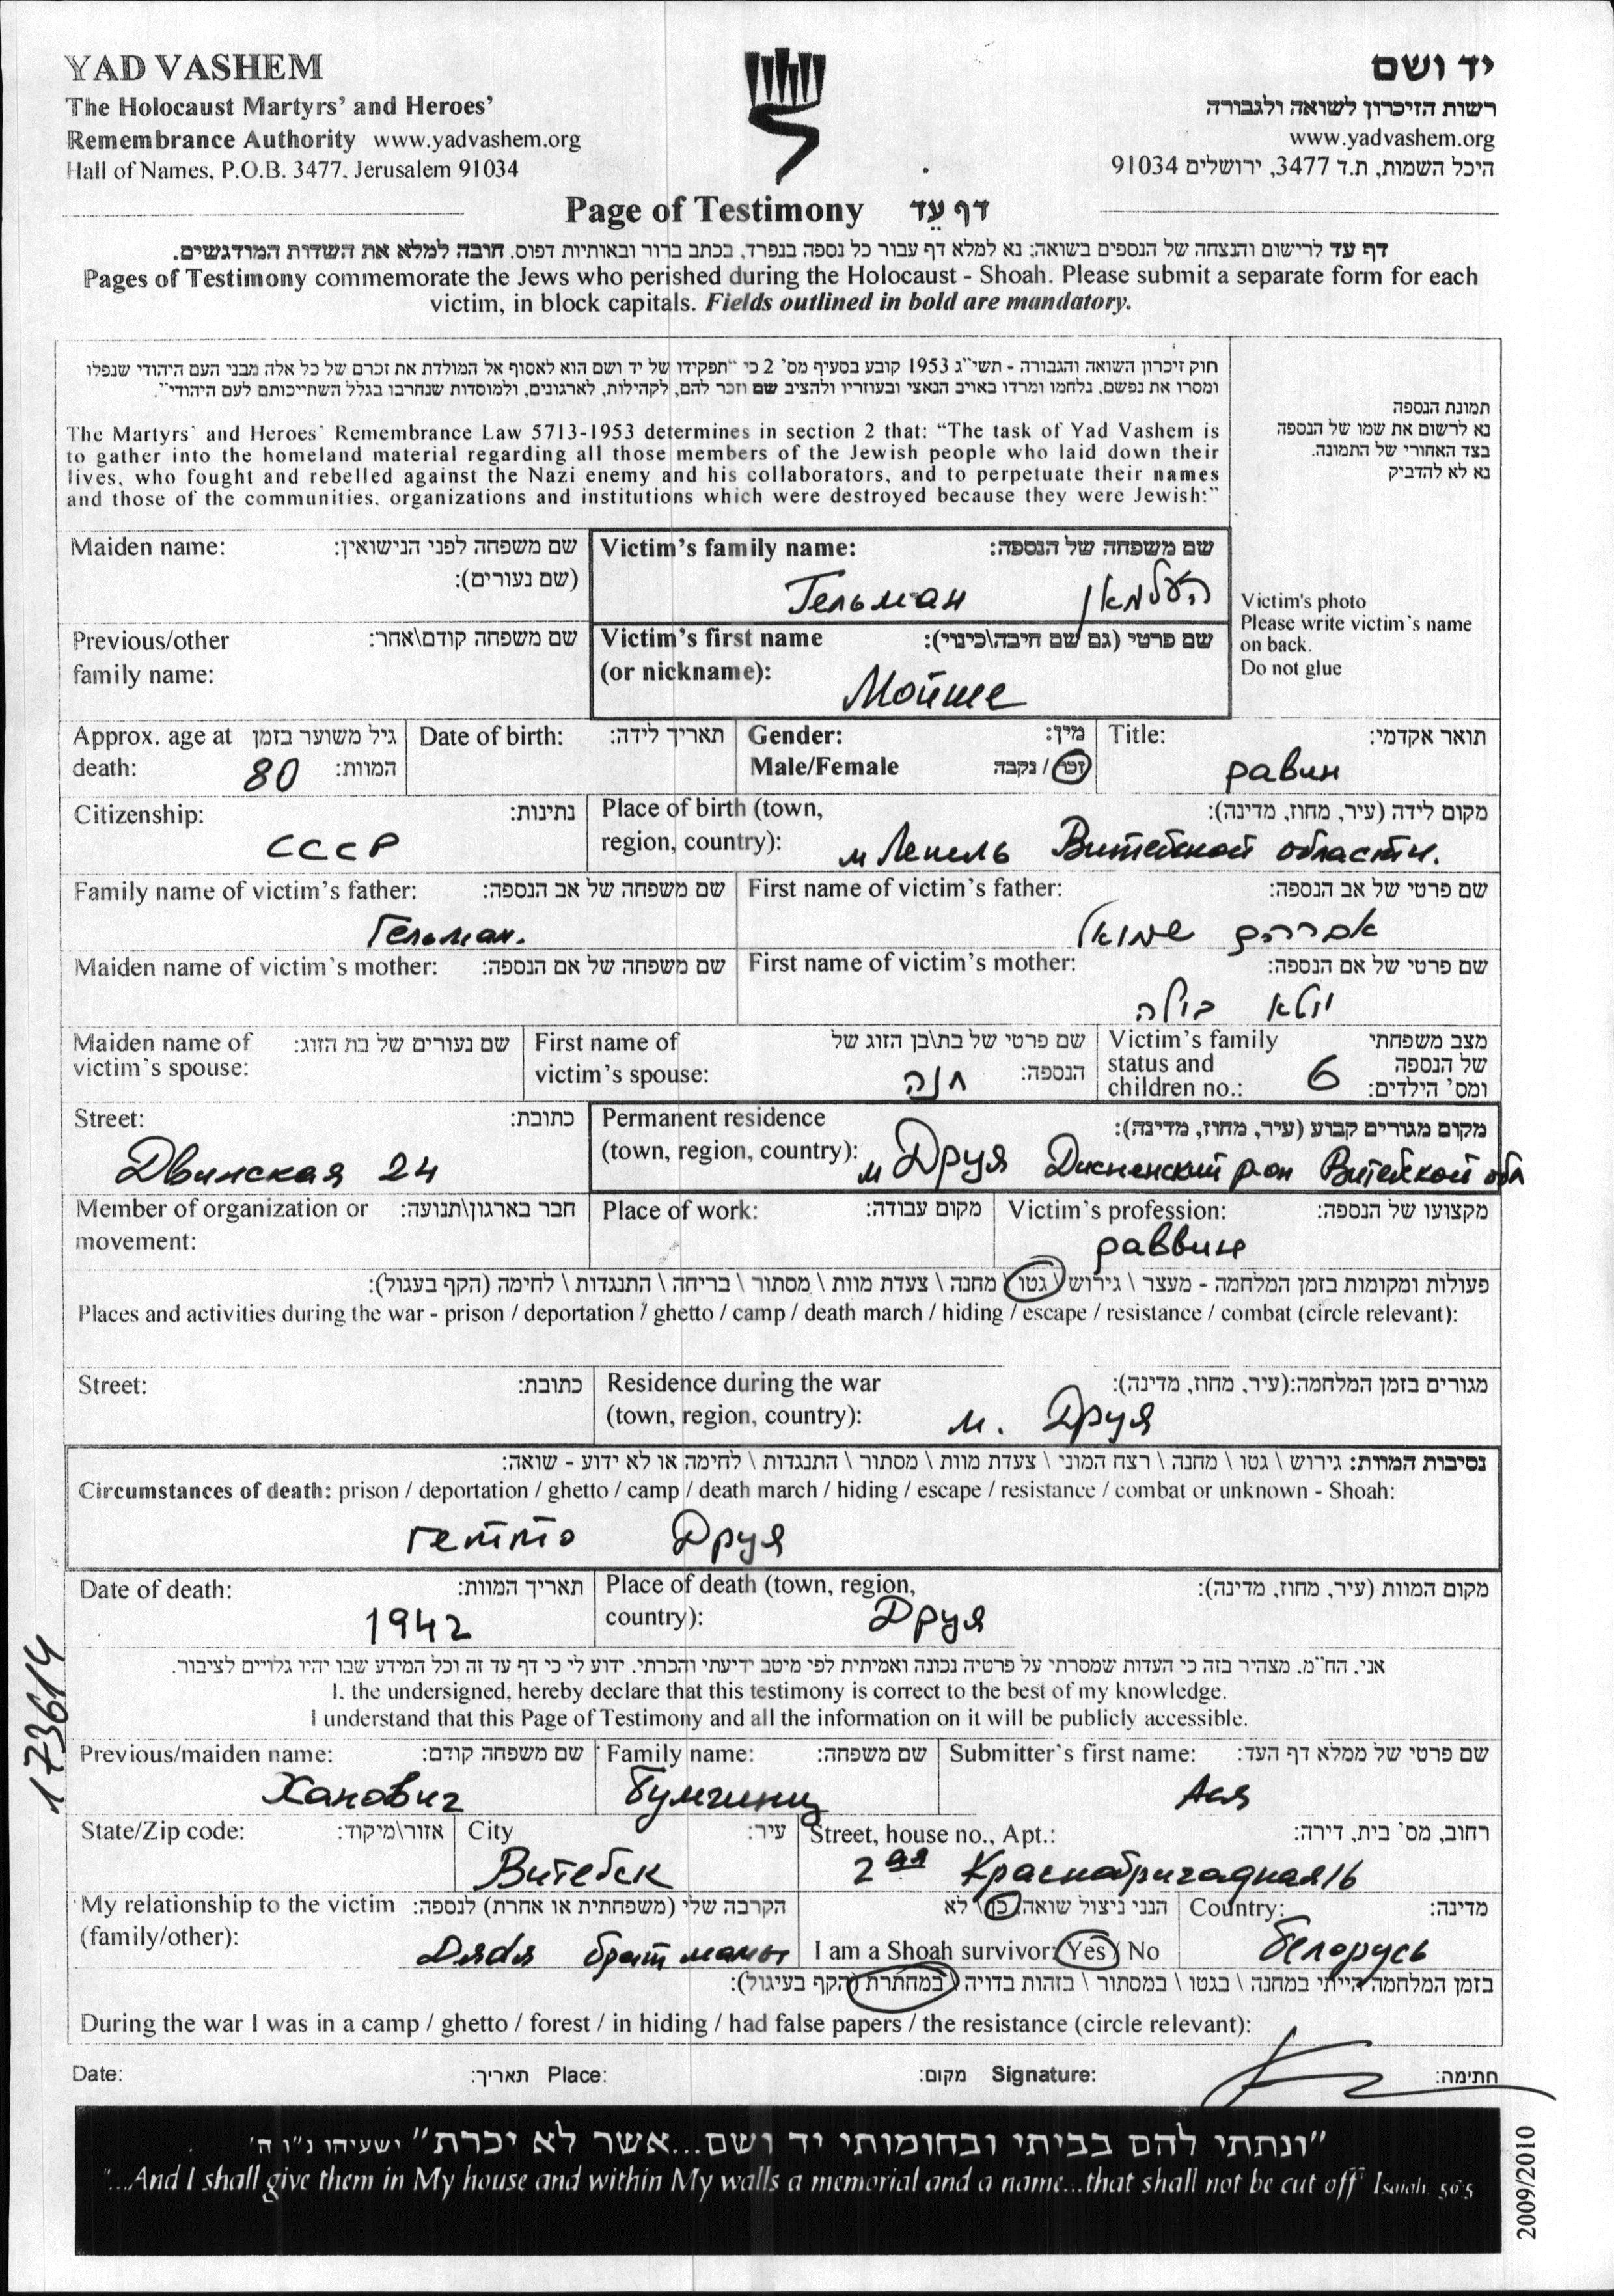 YAD VASHEM
The Holocaust Martyrs' and Heroes'
Remembrance Authority www.yadvashem.org
Hall of Names, P.O.B. 3477, Jerusalem 91034
יד ושם
רשות הזיכרון לשואה ולגבורה
www.yadvashem.org
היכל השמות, ת.ד 3477, ירושלים 91034
Page of Testimony דף עֵד
דף עד לרישום והנצחה של הנספים בשואה; נא למלא דף עבור כל נספה בנפרד, בכתב ברור ובאותיות דפוס. חובה למלא את השדות המודגשים.
Pages of Testimony commemorate the Jews who perished during the Holocaust - Shoah. Please submit a separate form for each
victim, in block capitals. Fields outlined in bold are mandatory.
חוק זיכרון השואה והגבורה - תשי"ג 1953 קובע בסעיף מס' 2 כי "תפקידו של יד ושם הוא לאסוף אל המולדת את זכרם של כל אלה מבני העם היהודי שנפלו
ומסרו את נפשם, נלחמו ומרדו באויב הנאצי ובעוזריו ולהציב שם וזכר להם, לקהילות, לארגונים, ולמוסדות שנחרבו בגלל השתייכותם לעם היהודי".
The Martyrs' and Heroes' Remembrance Law 5713-1953 determines in section 2 that: "The task of Yad Vashem is
to gather into the homeland material regarding all those members of the Jewish people who laid down their
lives, who fought and rebelled against the Nazi enemy and his collaborators, and to perpetuate their names
and those of the communities, organizations and institutions which were destroyed because they were Jewish:"
תמונת הנספה
נא לרשום את שמו של הנספה
בצד האחורי של התמונה.
נא לא להדביק
Victim's photo
Please write victim's name
on back.
Do not glue
Maiden name: שם משפחה לפני הנישואין:
(שם נעורים):
Victim's family name: שם משפחה של הנספה:
Гельман העלמאן
Previous/other שם משפחה קודם\אחר:
family name:
Victim's first name שם פרטי (גם שם חיבה\כינוי):
(or nickname):
Мойше
Approx. age at גיל משוער בזמן
death: 80 המוות:
Date of birth: תאריך לידה:
Gender: מין:
Male/Female זכר / נקבה
Title: תואר אקדמי:
равин
Citizenship: נתינות:
СССР
Place of birth (town, מקום לידה (עיר, מחוז, מדינה):
region, country): м Лепель Витебской области.
Family name of victim's father: שם משפחה של אב הנספה:
Гельман.
First name of victim's father: שם פרטי של אב הנספה:
אברהם שמואל
Maiden name of victim's mother: שם משפחה של אם הנספה:
First name of victim's mother: שם פרטי של אם הנספה:
Maiden name of שם נעורים של בת הזוג:
victim's spouse:
First name of שם פרטי של בת\בן הזוג של
victim's spouse: חנה הנספה:
Victim's family מצב משפחתי
status and של הנספה
children no.: 6 ומס' הילדים:
Street: כתובת:
Двинская 24
Permanent residence מקום מגורים קבוע (עיר, מחוז, מדינה):
(town, region, country): м Друя Дисненский р-он Витебской обл
Member of organization or חבר בארגון\תנועה:
movement:
Place of work: מקום עבודה:
Victim's profession: מקצועו של הנספה:
раввин
פעולות ומקומות בזמן המלחמה - מעצר \ גירוש \ גטו \ מחנה \ צעדת מוות \ מסתור \ בריחה \ התנגדות \ לחימה (הקף בעגול):
Places and activities during the war - prison / deportation / ghetto / camp / death march / hiding / escape / resistance / combat (circle relevant):
Street: כתובת:
Residence during the war מגורים בזמן המלחמה:(עיר, מחוז, מדינה):
(town, region, country): м. Друя
נסיבות המוות: גירוש \ גטו \ מחנה \ רצח המוני \ צעדת מוות \ מסתור \ התנגדות \ לחימה או לא ידוע - שואה:
Circumstances of death: prison / deportation / ghetto / camp / death march / hiding / escape / resistance / combat or unknown - Shoah:
гетто Друя
Date of death: תאריך המוות:
1942
Place of death (town, region, מקום המוות (עיר, מחוז, מדינה):
country): Друя
אני, הח"מ, מצהיר בזה כי העדות שמסרתי על פרטיה נכונה ואמיתית לפי מיטב ידיעתי והכרתי. ידוע לי כי דף עד זה וכל המידע שבו יהיו גלויים לציבור.
I, the undersigned, hereby declare that this testimony is correct to the best of my knowledge.
I understand that this Page of Testimony and all the information on it will be publicly accessible.
Previous/maiden name: שם משפחה קודם:
Ханович
Family name: שם משפחה:
Submitter's first name: שם פרטי של ממלא דף העד:
Ася
State/Zip code: אזור\מיקוד:
City עיר:
Витебск
Street, house no., Apt.: רחוב, מס' בית, דירה:
2ая Краснобригадная 16
My relationship to the victim הקרבה שלי (משפחתית או אחרת) לנספה:
(family/other): Дядя брат мамы
הנני ניצול שואה: כן \ לא
I am a Shoah survivor: Yes / No
Country: מדינה:
Белорусь
בזמן המלחמה הייתי במחנה \ בגטו \ במסתור \ בזהות בדויה \ במחתרת (הקף בעיגול):
During the war I was in a camp / ghetto / forest / in hiding / had false papers / the resistance (circle relevant):
Date: תאריך: Place: מקום: Signature: חתימה:
"ונתתי להם בביתי ובחומותי יד ושם...אשר לא יכרת" ישעיהו נ"ו ה'
"...And I shall give them in My house and within My walls a memorial and a name...that shall not be cut off" Isaiah, 56:5
173614
2009/2010